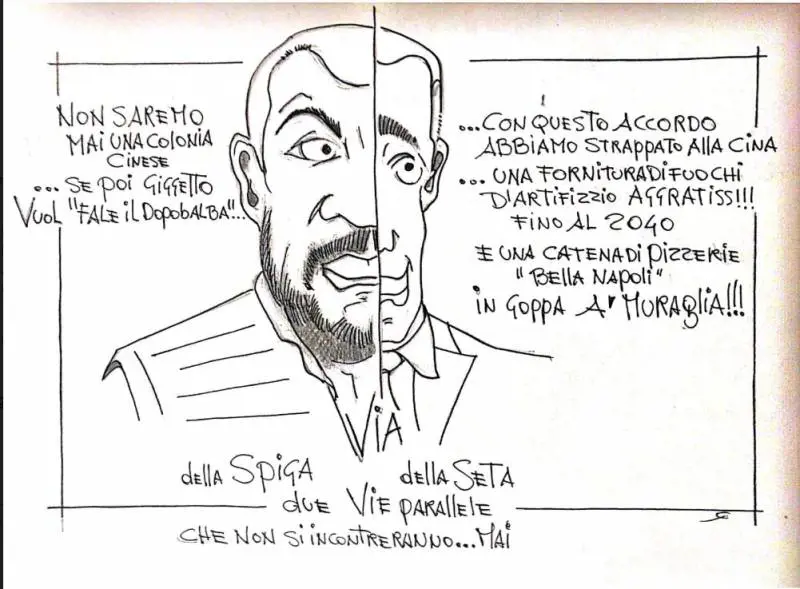 NON SAREMO
MAI UNA COLONIA
CINESE
... SE POI GIGGETTO
VUOL "FALE iL DOPOBALBA"...
...CON QUESTO ACCORDO
ABBIAMO STRAPPATO ALLA CINA
... UNA FORNITURA DI FUOCHI
D'ARTIFIZZIO AGGRATISS!!!
FINO AL 2040
E UNA CATENA DI PIZZERIE
"BELLA NAPOLI"
iN GOPPA A' MURAGLIA!!!
ViA
dELLA SPiGA
dELLA SETA
dUE ViE PARALLELE
CHE NON Si iNCONTRERANNO...MAi